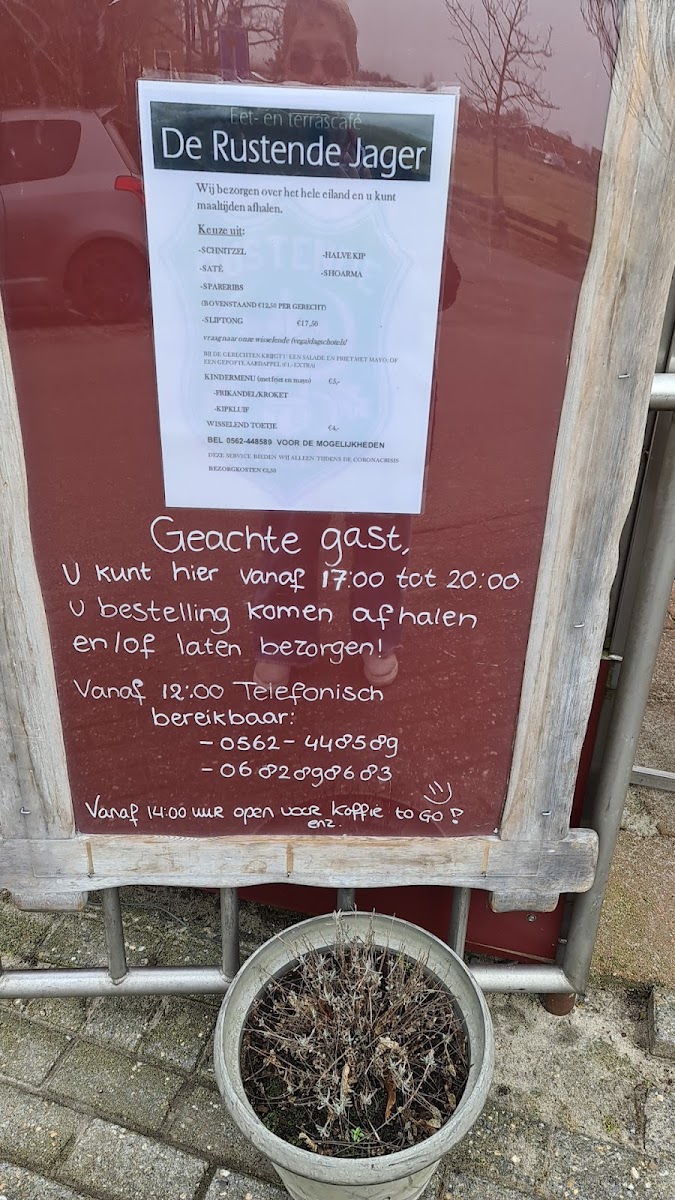 Eet- en terrascafé
De Rustende Jager
Wij bezorgen over het hele eiland en u kunt
maaltijden afhalen.
Keuze uit:
-SCHNITZEL -HALVE KIP
-SATÉ -SHOARMA
-SPARERIBS
(BOVENSTAAND €12,50 PER GERECHT)
-SLIPTONG €17,50
vraag naar onze wisselende (vega)dagschotels!
BIJ DE GERECHTEN KRIJGT U EEN SALADE EN FRIET MET MAYO, OF
EEN GEPOFTE AARDAPPEL (€1,- EXTRA)
KINDERMENU (met friet en mayo) €5,-
-FRIKANDEL/KROKET
-KIPKLUIF
WISSELEND TOETJE €4,-
BEL 0562-448589 VOOR DE MOGELIJKHEDEN
DEZE SERVICE BIEDEN WIJ ALLEEN TIJDENS DE CORONACRISIS
BEZORGKOSTEN €2,50
Geachte gast,
U kunt hier vanaf 17:00 tot 20:00
U bestelling komen afhalen
en/of laten bezorgen!
Vanaf 12:00 Telefonisch
bereikbaar:
- 0562-448589
- 0682898683
Vanaf 14:00 uur open voor koffie to GO!
enz.